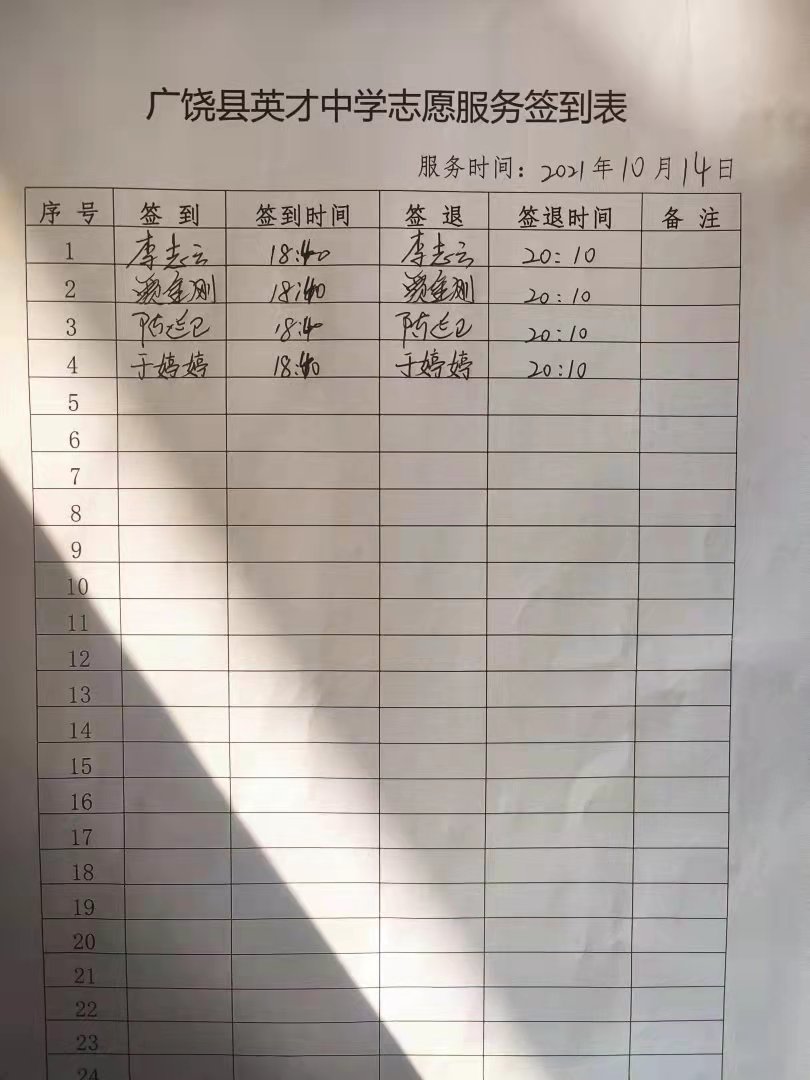 广饶县英才中学志愿服务签到表
服务时间：2021年10月14日
序号 签到 签到时间 签退 签退时间 备注
1 李志云 18:40 李志云 20:10
2 18:40 20:10
3 陈延卫 18:40 陈延卫 20:10
4 于婷婷 18:40 于婷婷 20:10
5
6
7
8
9
10
11
12
13
14
15
16
17
18
19
20
21
22
23
24